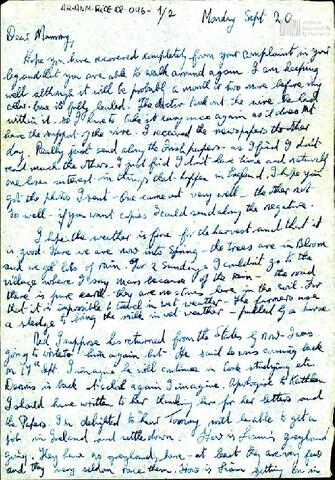 AR-ANM-RICE-08-046- 1/2
Monday Sept 20
Dear Mammy,
Hope you have recovered completely from your complaint in your
leg and that you are able to walk around again. I am keeping
well although it will be probably a month or two more before my
is fully healed. The doctor took out the wire he had
within it. so I'll have to take it easy once again as it does not
have the support of the wire. I received the newspapers the other
day. Really just send along the Irish papers - as I find I don't
read much the others. I just find I don't have time and naturally
one loses interest in things that happen in England. I hope you
got the photos I sent - One came out very well - the other not
so well - if you want copies I could send along the negative.
I hope the weather is fine for the harvest and that it
is good. Here we are now into Spring - the trees are in bloom
and we get lots of rain. For 2 Sundays I couldn't go to the
village where I say mass because of the rain - the road
there is pure earth. they are no stones here in the soil. For
that it is impossible to travel in wet weather. The farmers use
a sledge to bring the milk in wet weather - pulled by a horse
Ned I suppose has returned from the States by now. I was
going to write to him again but he said he was coming back
on 17th Sept. I imagine he will continue in Cork studying etc.
Dennis is back at school again I imagine. Apologise to Kathleen
I should have written to her thanking her for her letters and
the Papers. I'm delighted to hear Tommy will be able to get a
job in Ireland and settle down. How is Liam's greyhound
going. They have no greyhounds here - at least they are very few
and they very seldom race them. How is Liam getting on in